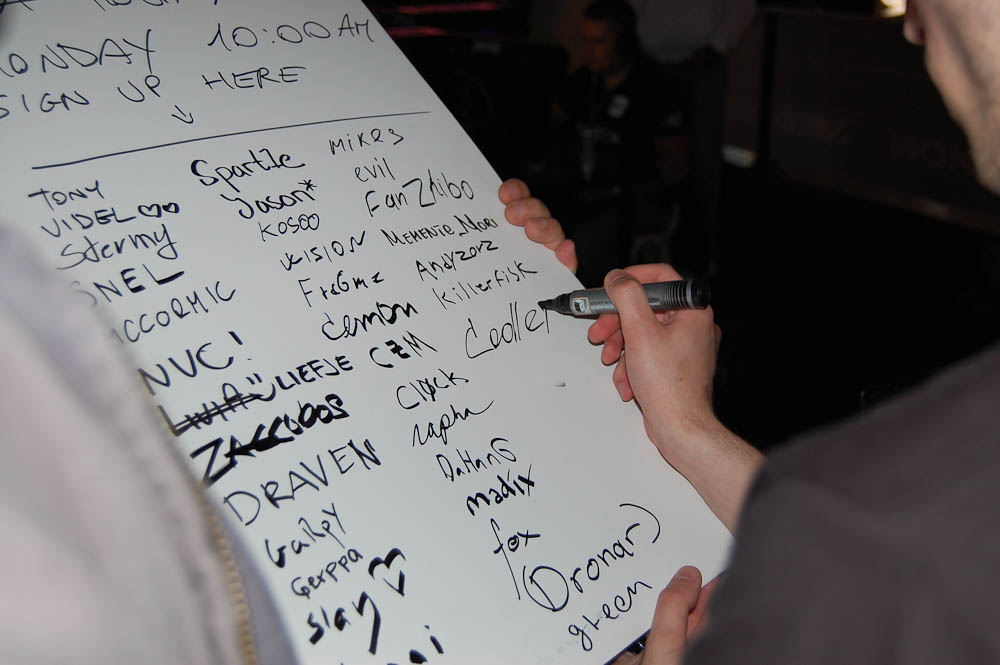 MONDAY 10:00AM
SIGN UP HERE
TONY
VIDEL
Stermy
SNEL
ACCORMIC
NVC!
LIEFJE
ZACCUBUS
DRAVEN
Gailpy
Gerppa
slay
Spart1e
Jason*
KOSOO
VISION
FraGmz
demon
CZM
Cløck
rapha
DaHanG
madix
fox
(Dronar)
gteen
MIKES
evil
FanZhibo
MEMENTO_MORI
Andyzorz
killerfisk
Cooller